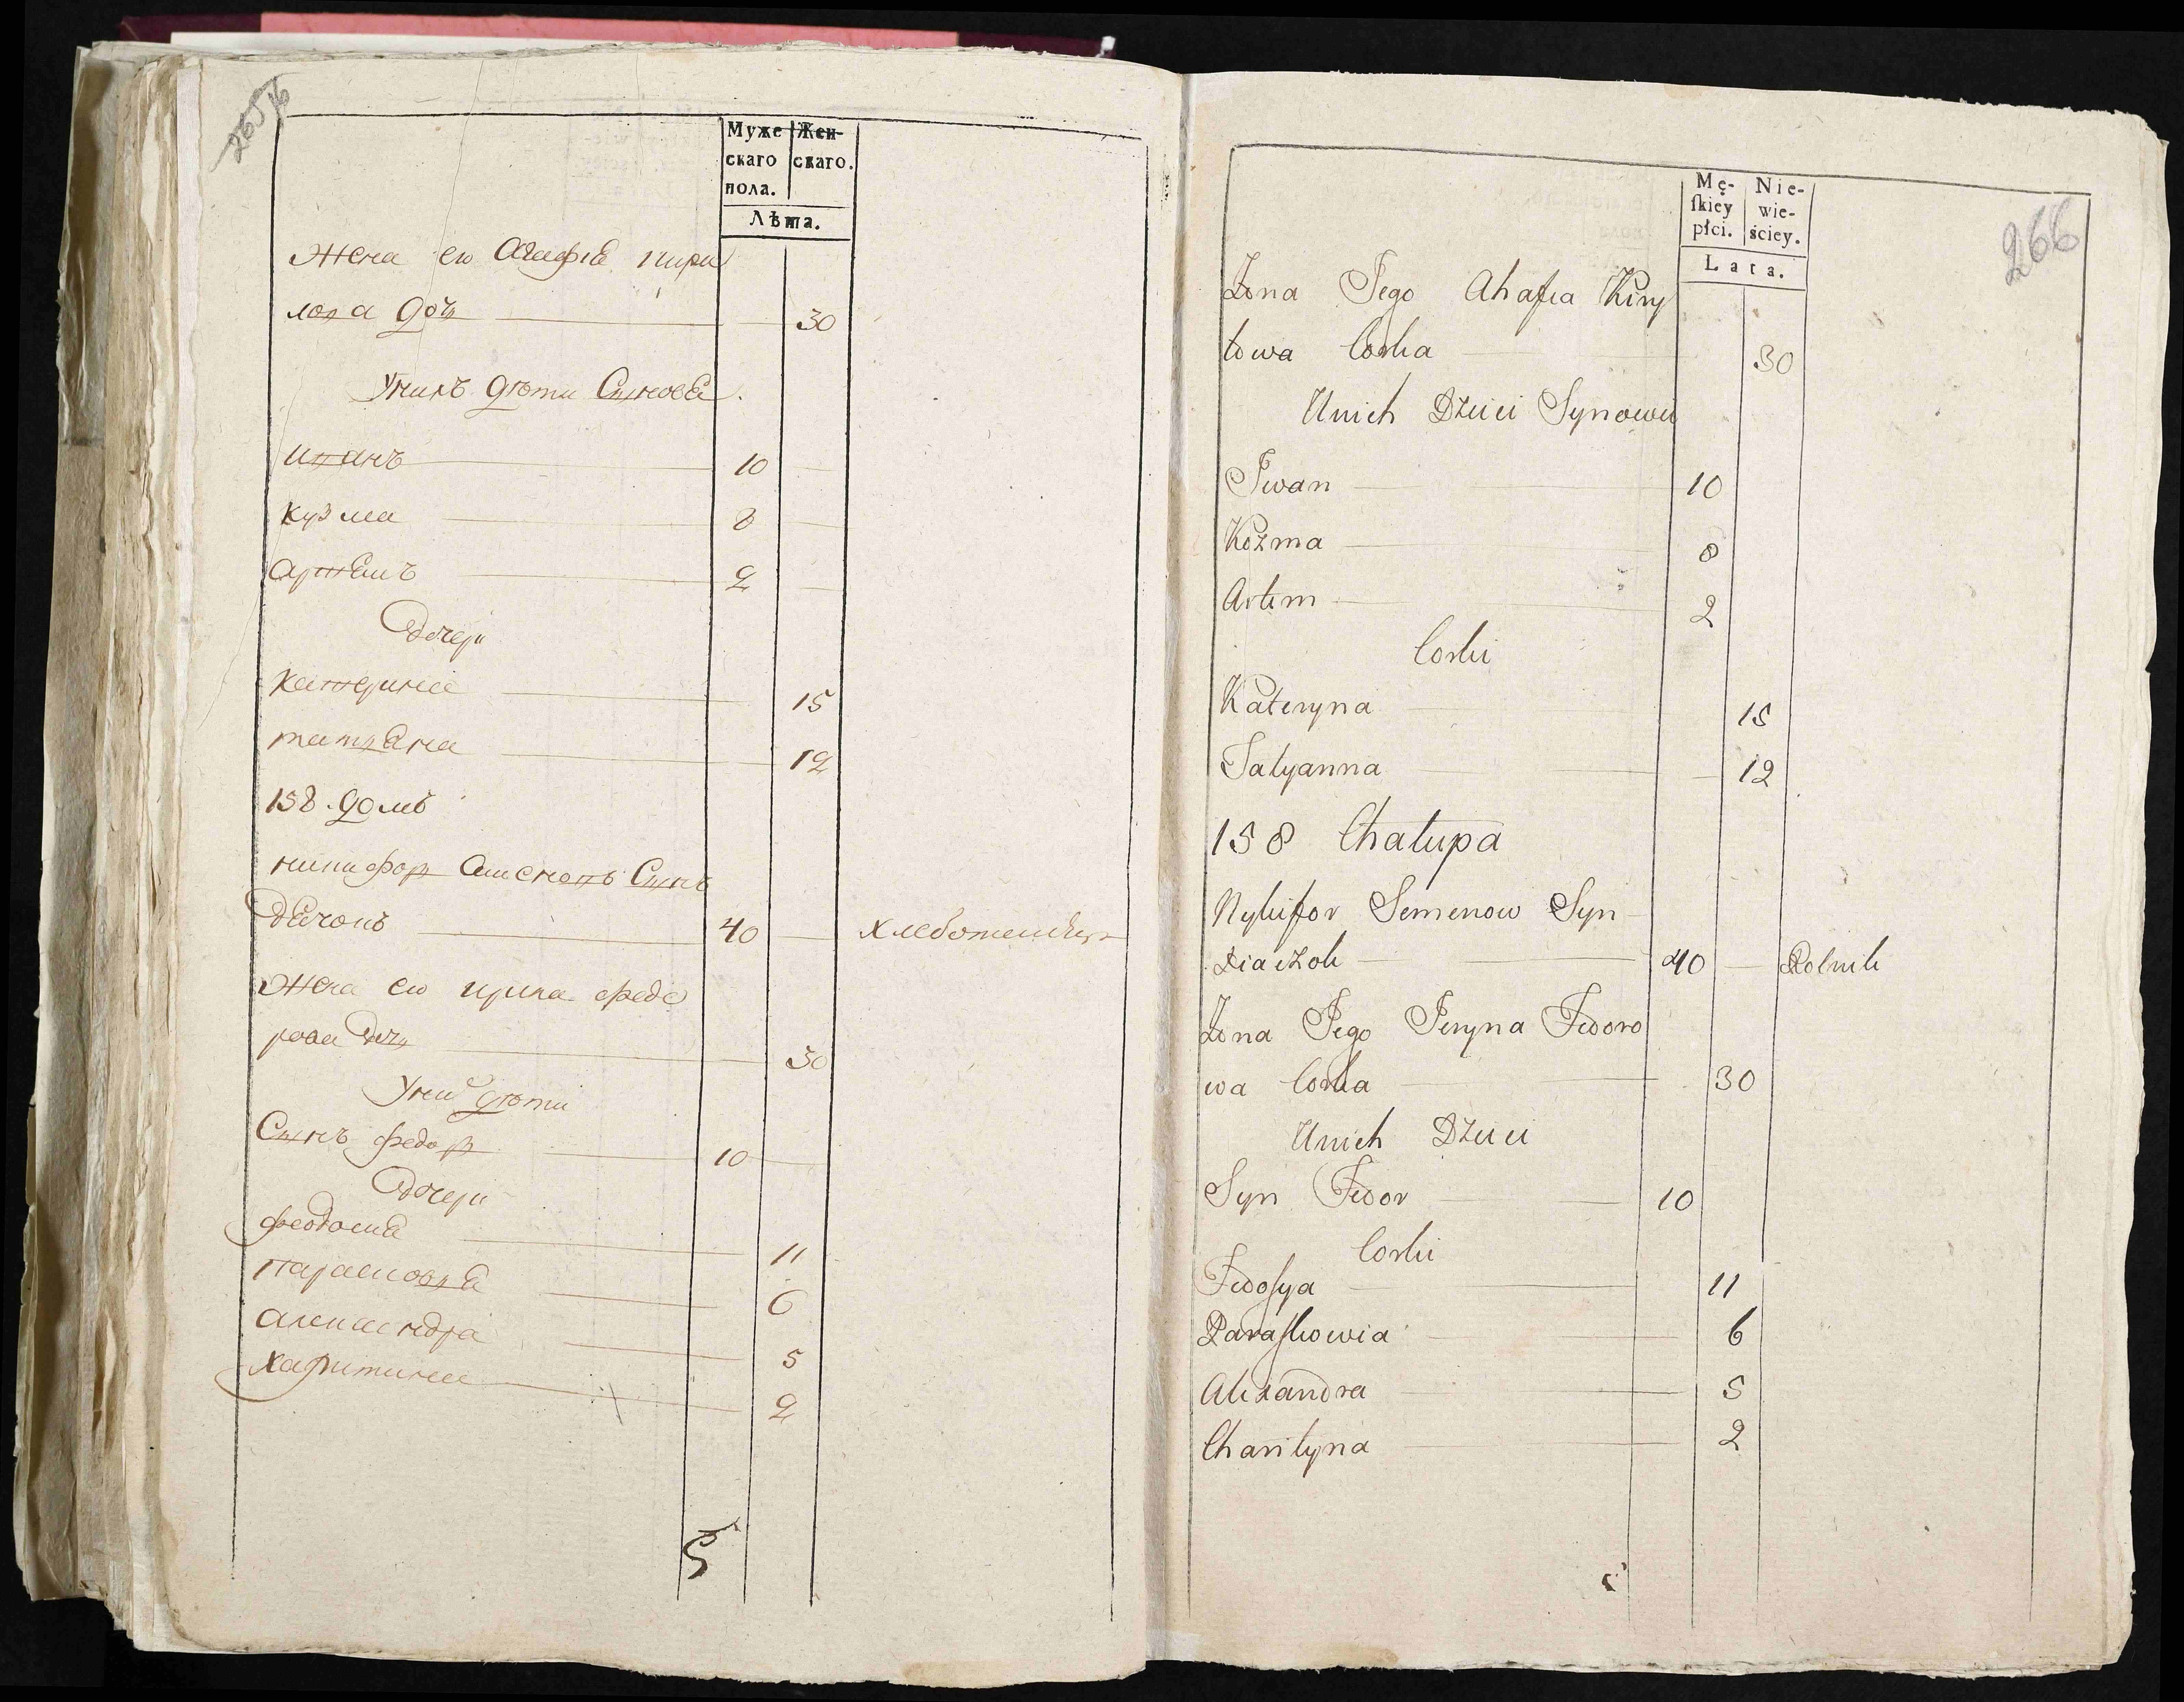 265
Муже Жен-
скаго скаго.
пола.
Лѣта.
Жена ею Агафіа Кири
лова дочь 30
Унихъ дѣти Сынове
иванъ 10
кузма 8
артемъ 2
дочери
катерина 15
татяна 12
158 домъ
никифор Семеновъ Сынъ
дячокъ 40
Жена ею ирина федо
рова дочь 30
Уних дѣти
Сынъ федор 10
дочери
феодосиа 11
парасковиа 6
александра 5
харитина 2
5
266
Mę- Nie-
ſkiey wie-
płci. ściey.
Lata.
Żona Jego Ahafia Kiry
łowa Corka 30
Unich Dzieci Synowie
Iwan 10
Kozma 8
Artem 2
Corki
Kateryna 15
Tatyanna 12
158 Chałupa
Nykifor Semenow Syn
Diaczok 40 Rolnik
Żona Jego Jeryna Fedoro
wa Corka 30
Unich Dzieci
Syn Fedor 10
Corki
Fedoſya 11
Paraſkowia 6
Alexandra 5
Charityna 2